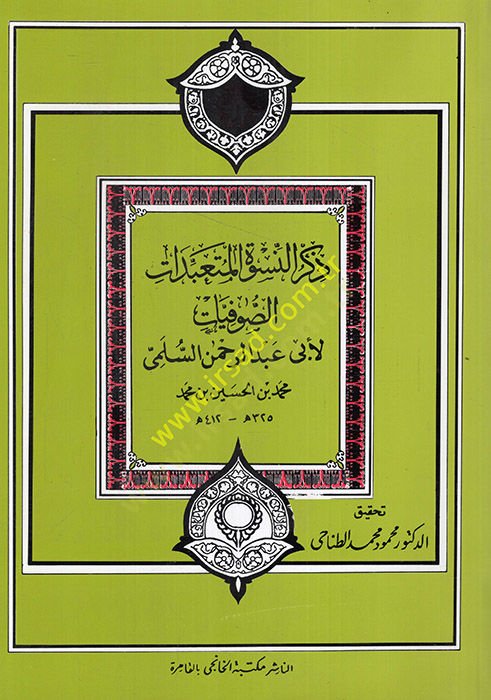 ذكر النسوة المتعبدات
الصوفيات
لأبي عبد الرحمن السلمي
محمد بن الحسين بن محمد
٣٢٥هـ - ٤١٢هـ
تحقيق
الدكتور محمود محمد الطناحي
الناشر مكتبة الخانجي بالقاهرة
www.irsad.com.tr